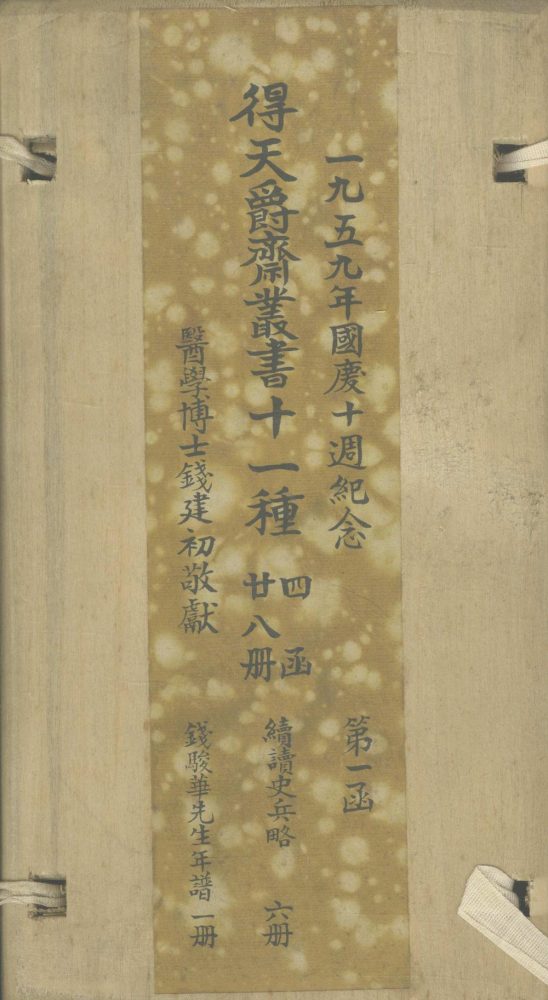 一九五九年國慶十週紀念
第一函
得天爵齋叢書十一種
四函
廿八册
續讀史兵略 六册
醫學博士錢建初敬獻
錢駿華先生年譜 一册